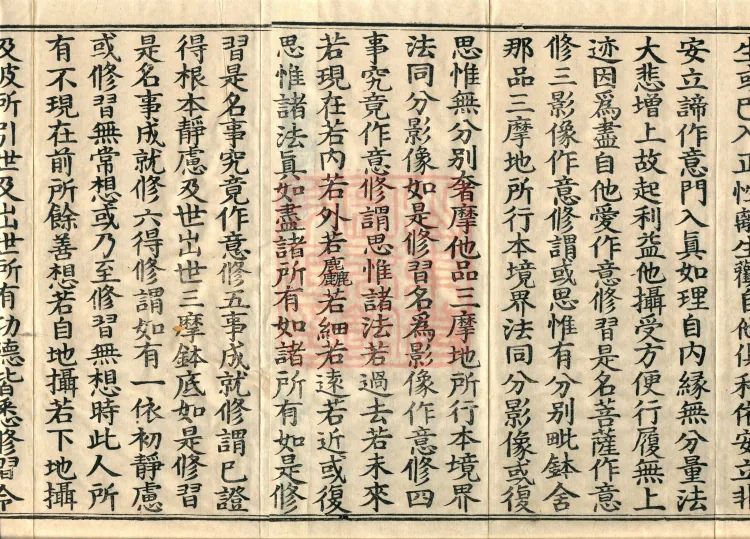 生或已入正性離生觀自他俱利俱安立非
安立諦作意門入眞如理自内縁無分量法
大悲增上故起利益他攝受方便行履無上
迹因爲盡自他愛作意修習是名菩薩作意
修三影像作意修謂或思惟有分別毗鉢舍
那品三摩地所行本境界法同分影像或復
思惟無分別奢摩他品三摩地所行本境界
法同分影像如是修習名爲影像作意修四
事究竟作意修謂思惟諸法若過去若未來
若現在若内若外若麤若細若遠若近或復
思惟諸法眞如盡諸所有如諸所有如是修
習是名事究竟作意修五事成就修謂已證
得根本靜慮及世出世三摩鉢底如是修習
是名事成就修六得修謂如有一依初靜慮
或修習無常想或乃至修習無想時此人所
有不現在前所餘善想若自地攝若下地攝
及彼所引世及出世所有功德皆悉修習令